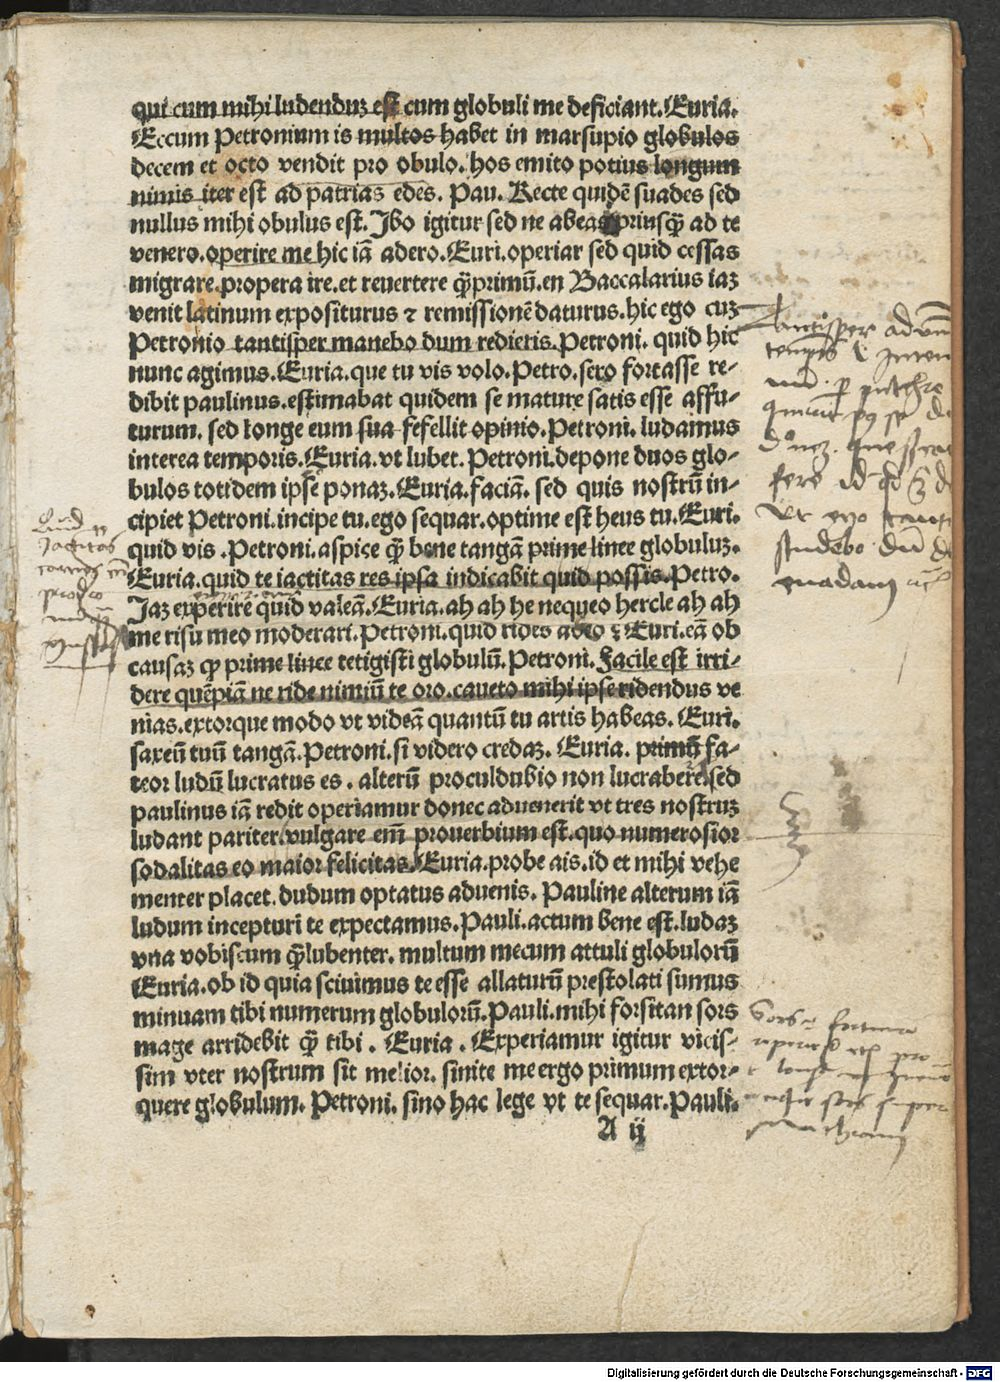 qui cum mihi ludenduz est cum globuli me deficiant. Euria.
Eccum Petronium is multos habet in marsupio globulos
decem et octo vendit pro obulo. hos emito potius longum
nimis iter est ad patrias edes. Pau. Recte quidē suades sed
nullus mihi obulus est. Ibo igitur sed ne abeas priusq̄ ad te
venero. operire me hic iā adero. Euri. operiar sed quid cessas
migrare. propera ire. et reuertere q̄primū. en Baccalarius iaz
venit latinum expositurus ⁊ remissionē daturus. hic ego cuz
Petronio tantisper manebo dum redieris. Petroni. quid hic
nunc agimus. Euria. que tu vis volo. Petro. sero fortasse re-
dibit paulinus. estimabat quidem se mature satis esse affu-
turum. sed longe eum sua fefellit opinio. Petroni. ludamus
interea temporis. Euria. vt lubet. Petroni. depone duos glo-
bulos totidem ipse ponaz. Euria. faciā. sed quis nostrū in-
cipiet Petroni. incipe tu. ego sequar. optime est heus tu. Euri.
quid vis. Petroni. aspice q̄ bene tangā prime linee globuluz.
Euria. quid te iactitas res ipsa indicabit quid possis. Petro.
Jaz experire quid valeā. Euria. ah ah he nequeo hercle ah ah
me risu meo moderari. Petroni. quid rides adeo ⁊ Euri. eā ob
causaz ꝙ prime linee tetigisti globulū. Petroni. Facile est irri-
dere quēpiā ne ride nimiū te oro. caueto mihi ipse ridendus ve
nias. extorque modo vt videā quantū tu artis habeas. Euri.
saxeū tuū tangā. Petroni. si videro credaz. Euria. primū fa-
teor ludū lucratus es. alterū proculdubio non lucrabere sed
paulinus iā redit operiamur donec aduenerit vt tres nostruz
ludant pariter. vulgare em̄ prouerbium est. quo numerosior
sodalitas eo maior felicitas. Euria. probe ais. id et mihi vehe
menter placet. dudum optatus aduenis. Pauline alterum iā
ludum incepturi te expectamus. Pauli. actum bene est. ludaz
vna vobiscum q̄lubenter. multum mecum attuli globulorū
Euria. ob id quia sciuimus te esse allaturū prestolati sumus
minuam tibi numerum globulorū. Pauli. mihi forsitan sors
mage arridebit q̄ tibi. Euria. Experiamur igitur vicis-
sim vter nostrum sit melior. sinite me ergo primum extor-
quere globulum. Petroni. sino hac lege vt te sequar. Pauli.
A ij
Quid
Jactitas
Tantisper
Digitalisierung gefördert durch die Deutsche Forschungsgemeinschaft - DFG